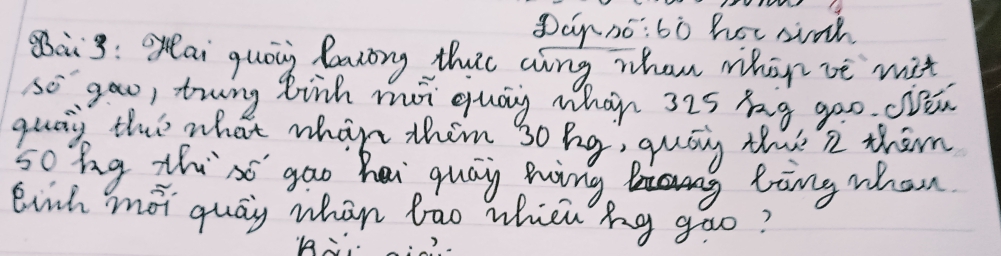 Đáp số: 60 học sinh
Bài 3: Hai quầy lương thực cùng nhau nhập về một
số gạo, trung bình mỗi quầy nhập 325 kg gạo. Nếu
quầy thứ nhất nhập thêm 30 kg, quầy thứ 2 thêm
50 kg thì số gạo hai quầy hàng bằng nhau.
Bình mỗi quầy nhập bao nhiêu kg gạo?
Bài giải: